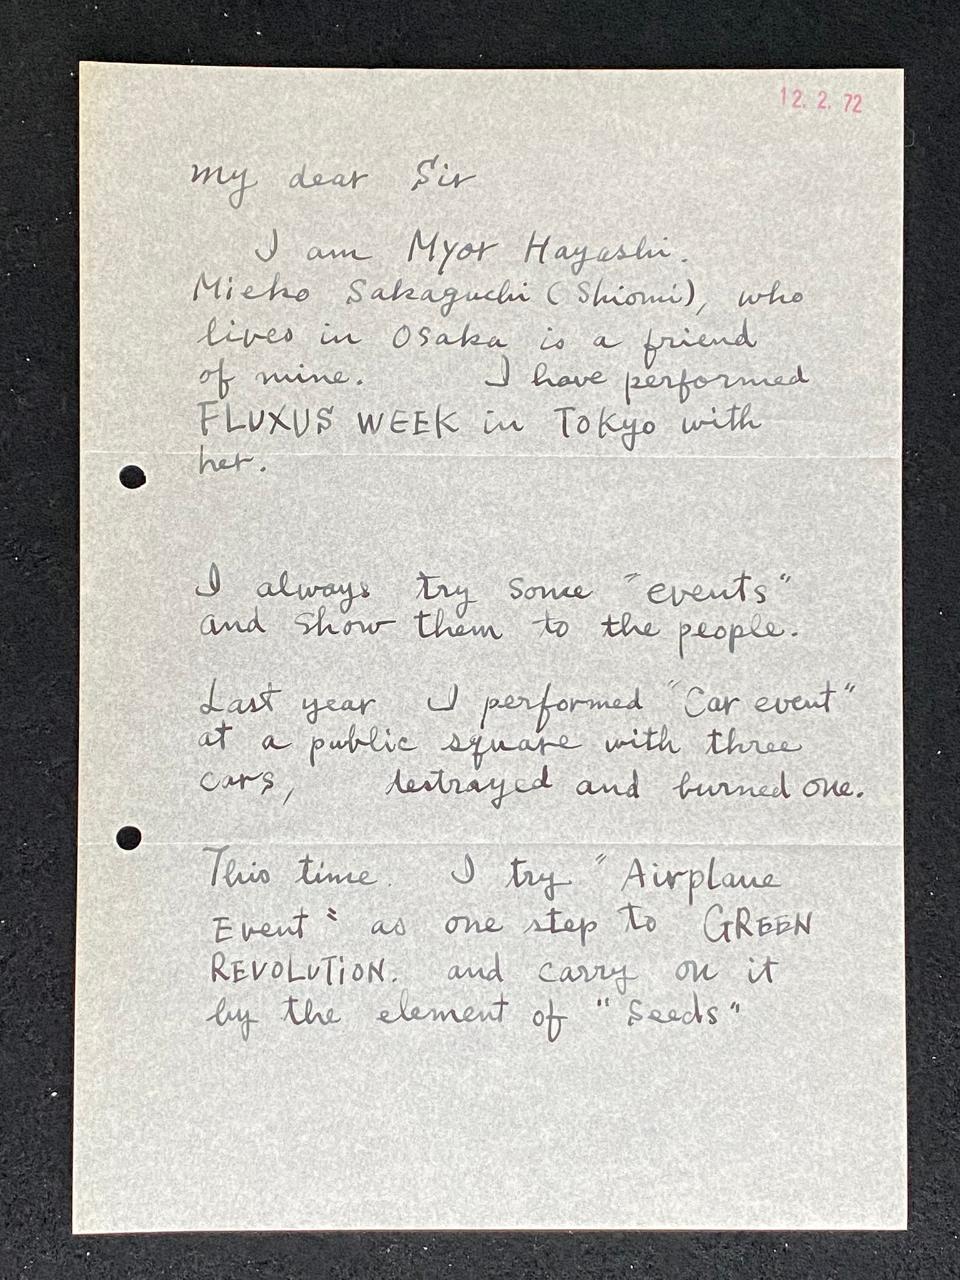 12. 2. 72
My dear Sir
I am Myor Hayashi.
Mieko Sakaguchi (Shiomi), who
lives in Osaka is a friend
of mine. I have performed
FLUXUS WEEK in Tokyo with
her.
I always try some "events"
and show them to the people.
Last year I performed "Car event"
at a public square with three
cars, destrayed and burned one.
This time. I try "Airplane
Event" as one step to GREEN
REVOLUTION. and carry on it
by the element of "Seeds"